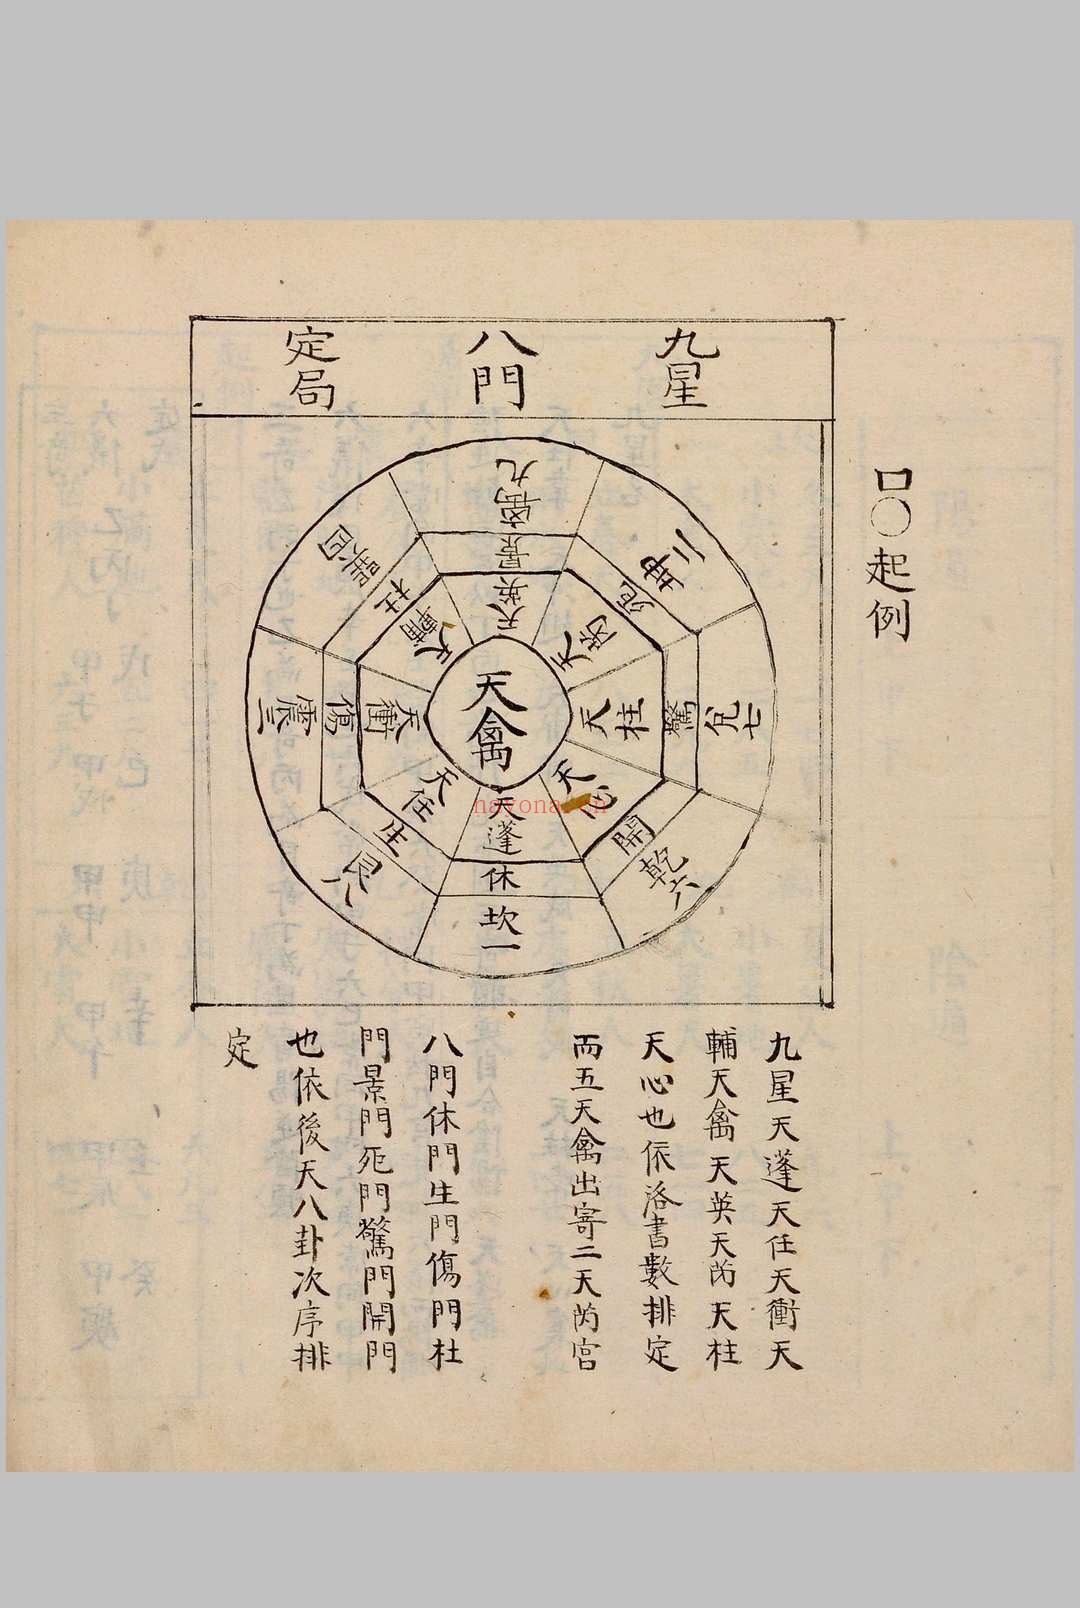 口〇起例
九星
八門
定局
九
离
景
天英
二
坤
死
天芮
兌七
驚
天柱
乾六
開
天心
坎一
休
天蓬
艮八
生
天任
震三
傷
天衝
巽四
杜
天輔
天禽
九星天蓬天任天衝天
輔天禽天英天芮天柱
天心也依洛書數排定
而五天禽出寄二天芮宮
八門休門生門傷門杜
門景門死門驚門開門
也依後天八卦次序排
定
nayona.cn